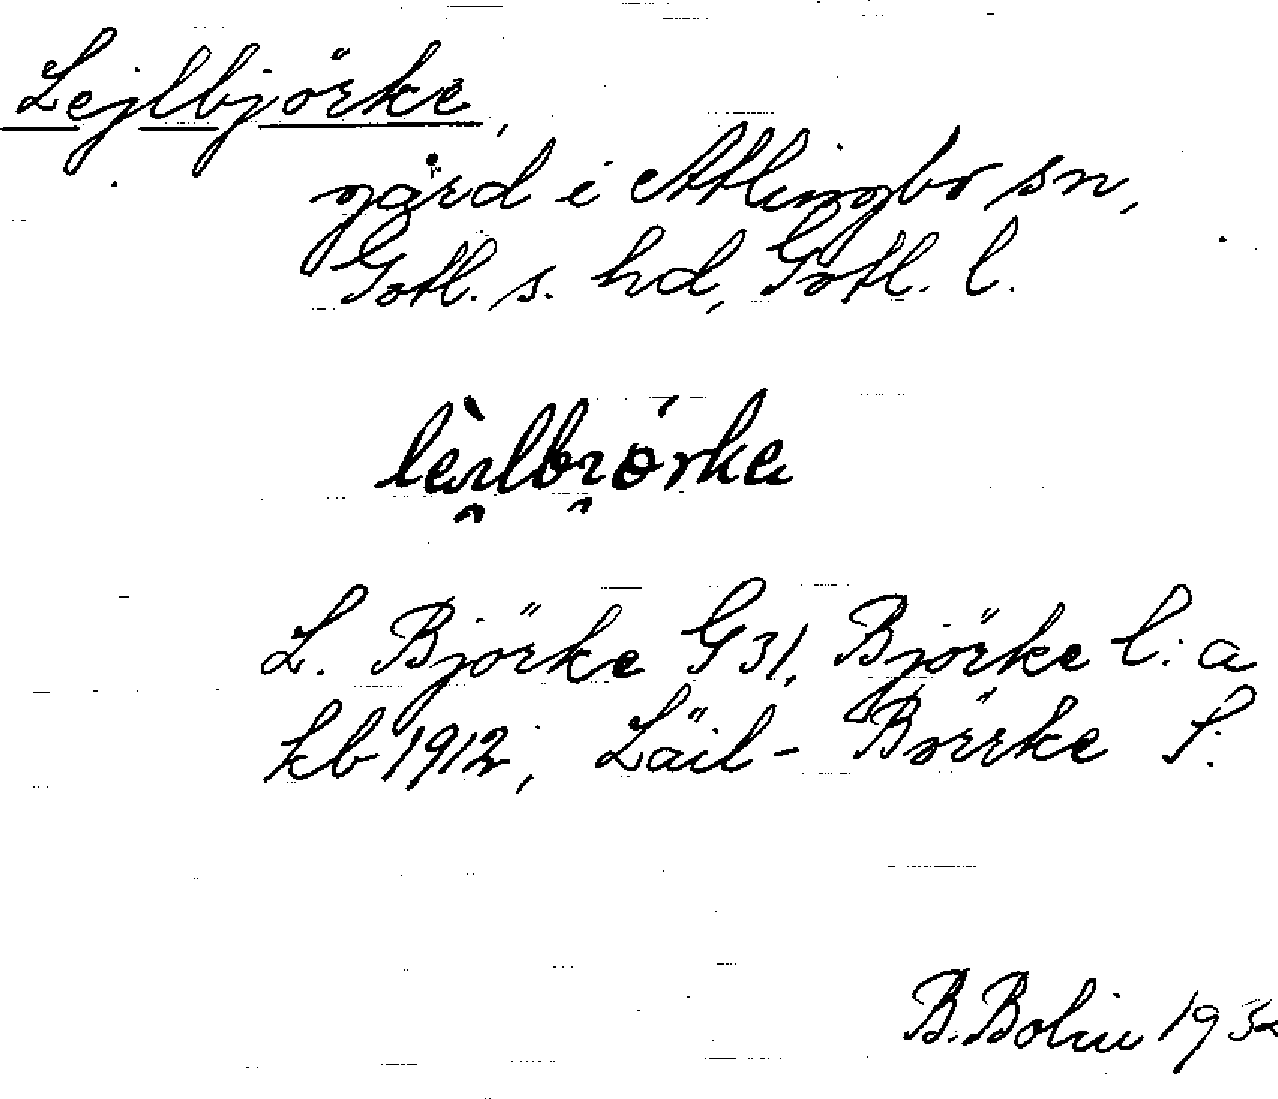 Lejlbjörke,
gård i Atlingbo sn,
Gotl. s. hd, Gotl. l.
L. Björke G 31, Björke l:a
kb 1912, Läil-Börrke S.
B. Bolin 1932